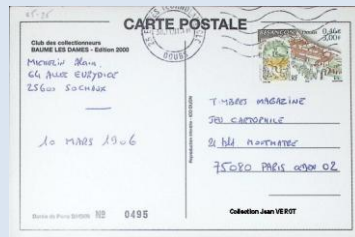 CARTE POSTALE
Club des collectionneurs
BAUME LES DAMES - Edition 2000
MICHELIN Alain
64 ALLÉE EURYDICE
25600 SOCHAUX
10 MARS 1906
BESANÇON
0,46€
3,00F
TIMBRES MAGAZINE
JEU CARTOPHILE
BLD MONTMARTRE
75080 PARIS CEDEX 02
DOUBS
Nº 0495
Collection Jean VEROT